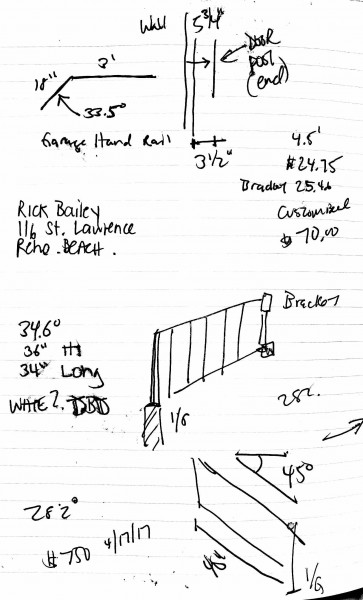 Wall 5 3/4"
DOOR
POST
(END)
18" 3'
33.5°
Garage Hand Rail
3 1/2"
4.5'
$24.75
Bracket 25.46
Customized
$70.00
RICK Bailey
116 St. Lawrence
Reho. BEACH.
Bracket
34.6°
36" Ht
34" Long
WHITE?
1/6
282.
45°
28.2°
$750 4/17/17
48"
1/6